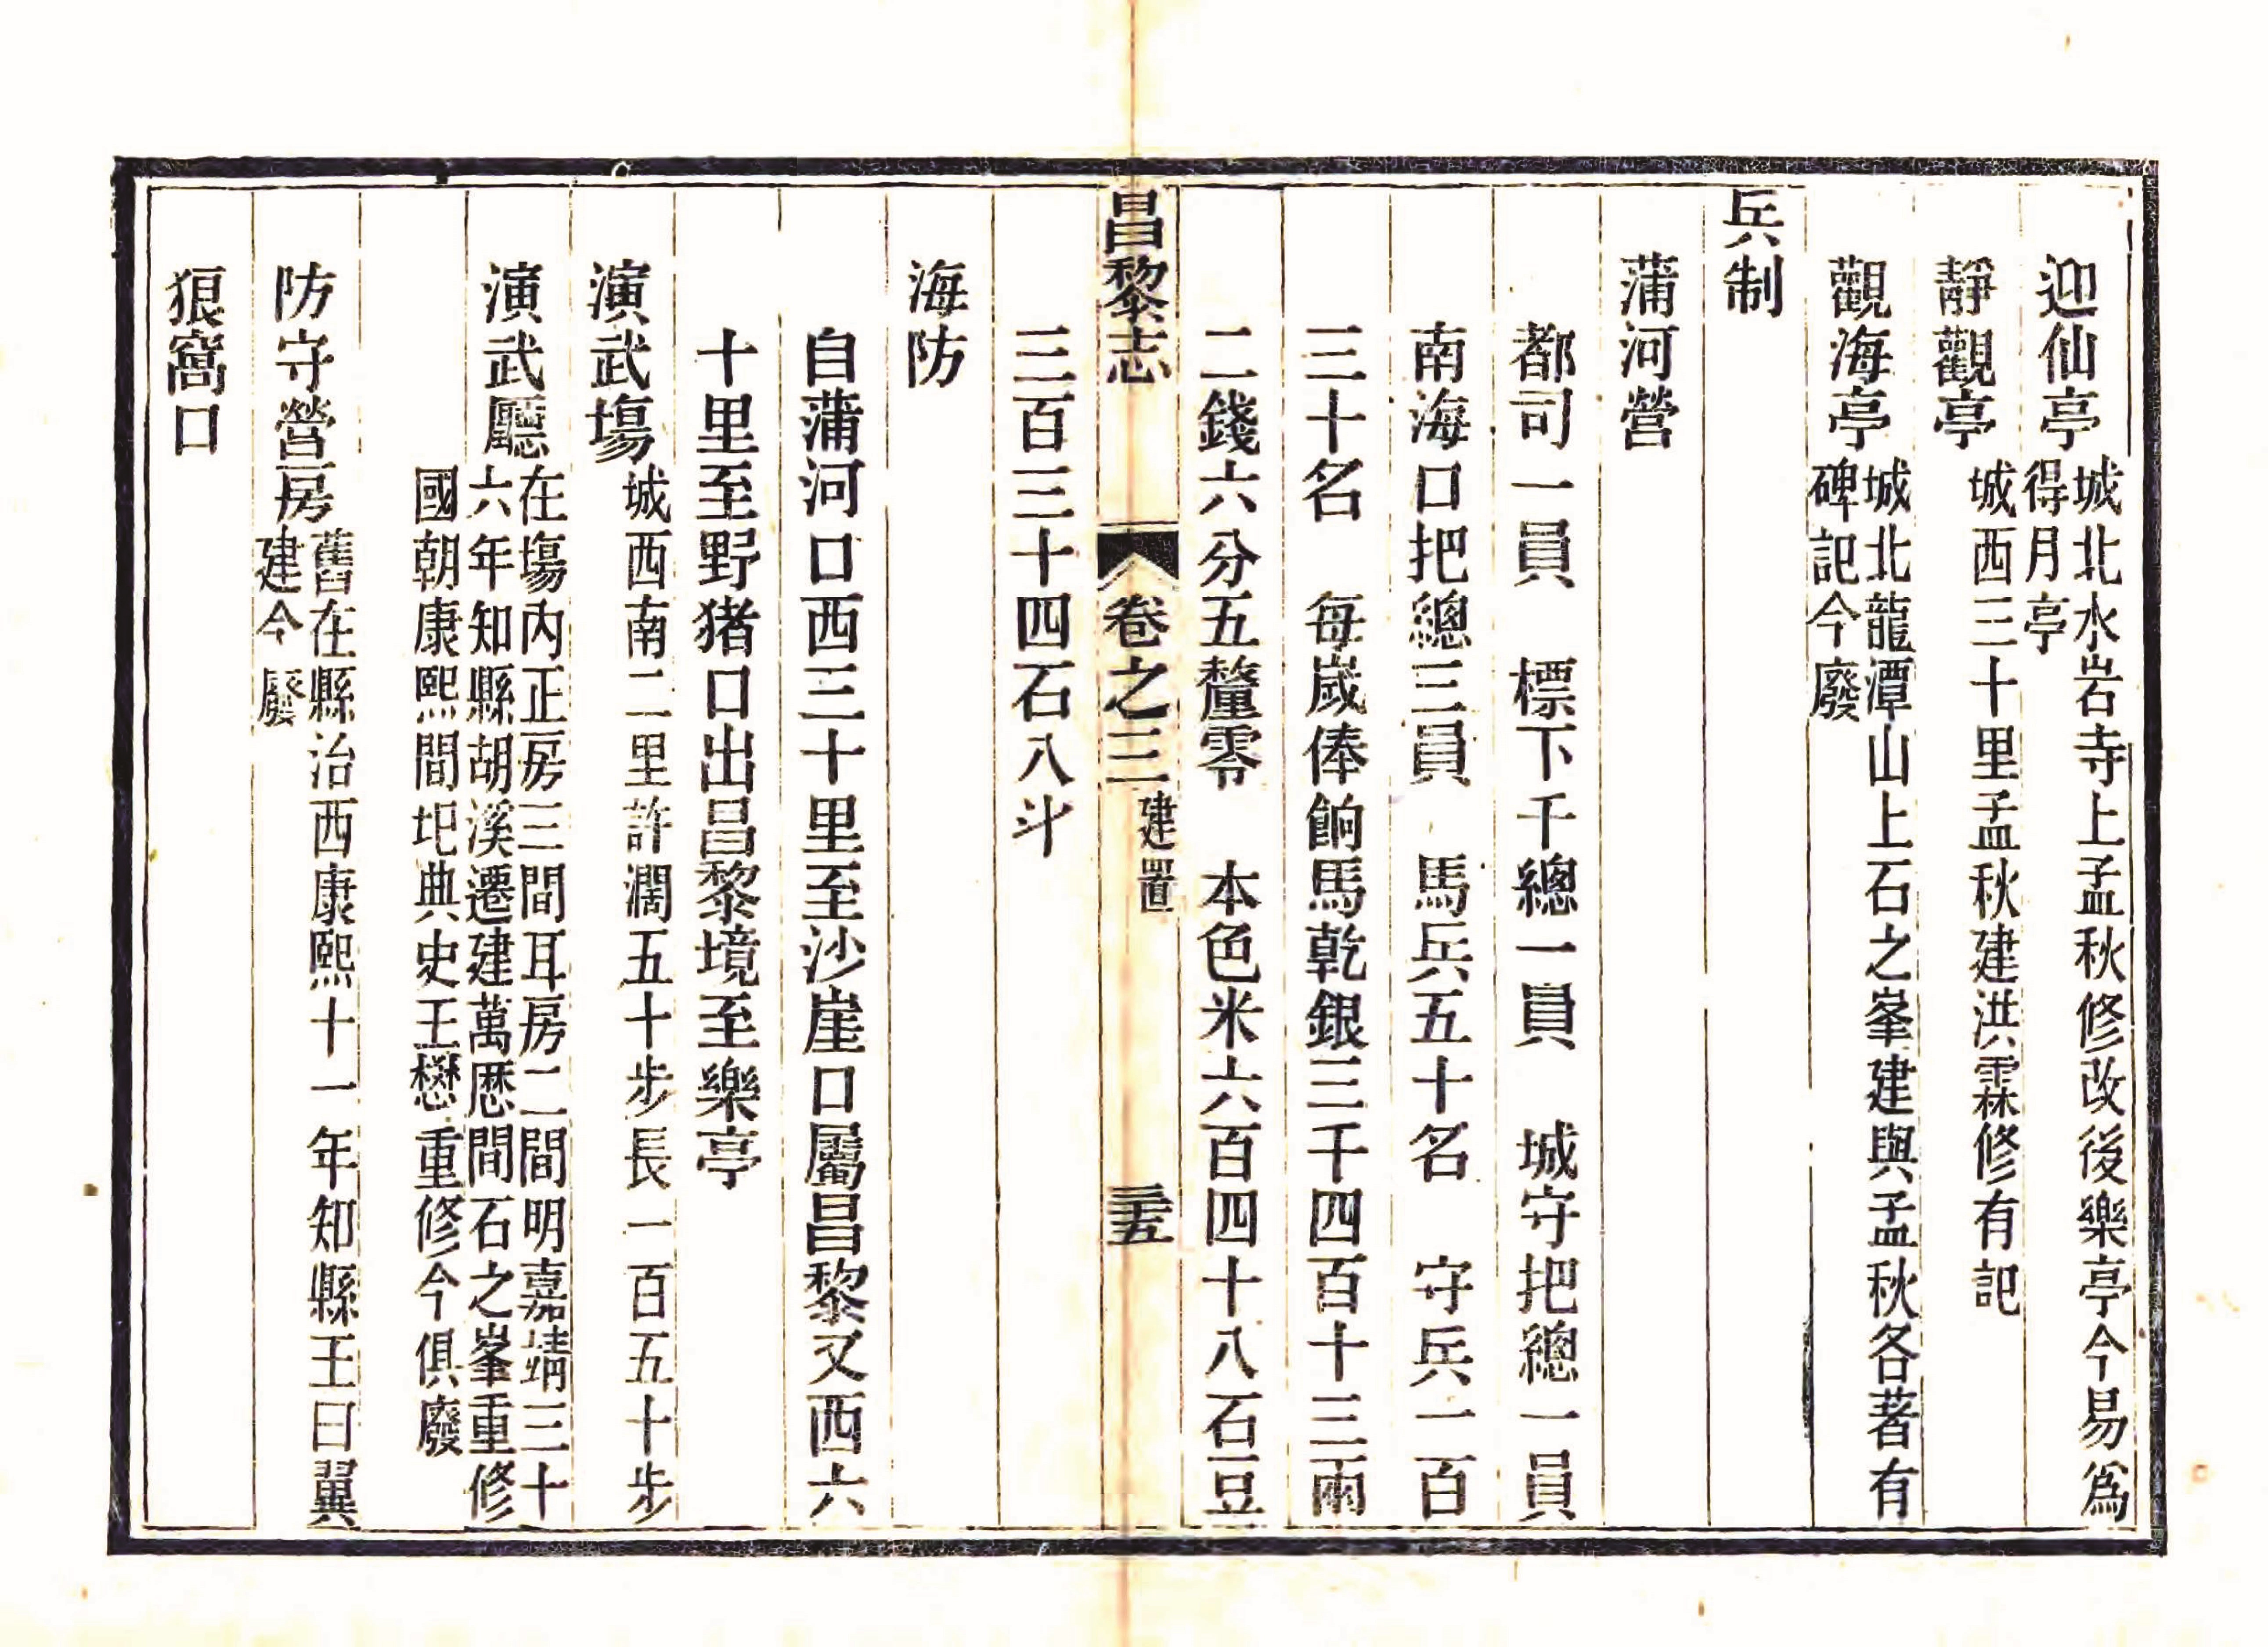 迎仙亭城北水岩寺上孟秋修改後樂亭今易爲
得月亭
靜觀亭城西三十里孟秋建洪霖修有記
觀海亭城北龍潭山上石之峯建與孟秋各著有
碑記今廢
兵制
蒲河營
都司一員　標下千總一員　城守把總一員
南海口把總三員　馬兵五十名　守兵一百
三十名　每嵗俸餉馬乾銀三千四百十三兩
二錢六分五釐零　本色米六百四十八石豆
三百三十四石八斗
昌黎志　卷之三　建置　三五
海防
自蒲河口西三十里至沙崖口屬昌黎又西六
十里至野猪口出昌黎境至樂亭
演武塲城西南二里許濶五十步長一百五十步
演武廳在塲内正房三間耳房二間明嘉靖三十
六年知縣胡溪遷建萬歴間石之峯重修
國朝康熙間圮典史王懋重修今俱廢
防守營房舊在縣治西康熙十一年知縣王曰翼
建今廢
狼窩口